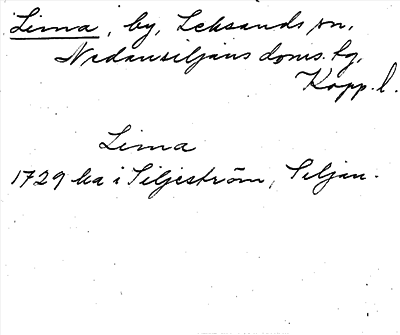 Lima, by, Leksands sn,
Nedansiljans doms. tg,
Kopp. l.
Lima
1729 ka i Siljeström, Siljan.